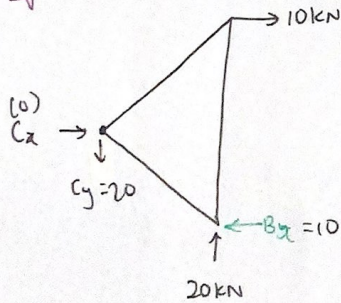 10kN
(0)
Cx
Cy=20
Bx =10
20kN